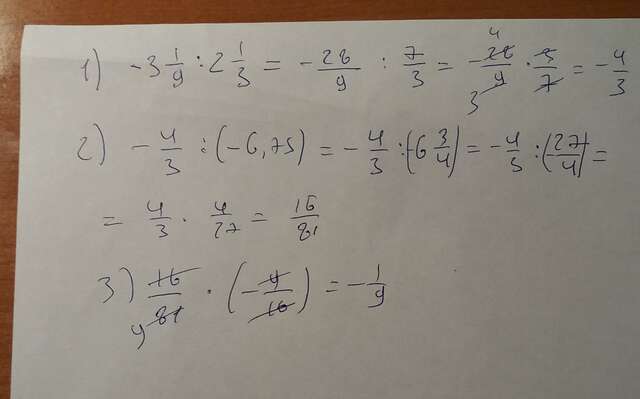 1) -3 1/9 : 2 1/3 = - 28/9 : 7/3 = - 28/9 · 3/7 = - 4/3
2) - 4/3 : (-6,75) = - 4/3 : (-6 3/4) = - 4/3 : (- 27/4) =
= 4/3 · 4/27 = 16/81
3) 16/81 · (- 9/16) = - 1/9